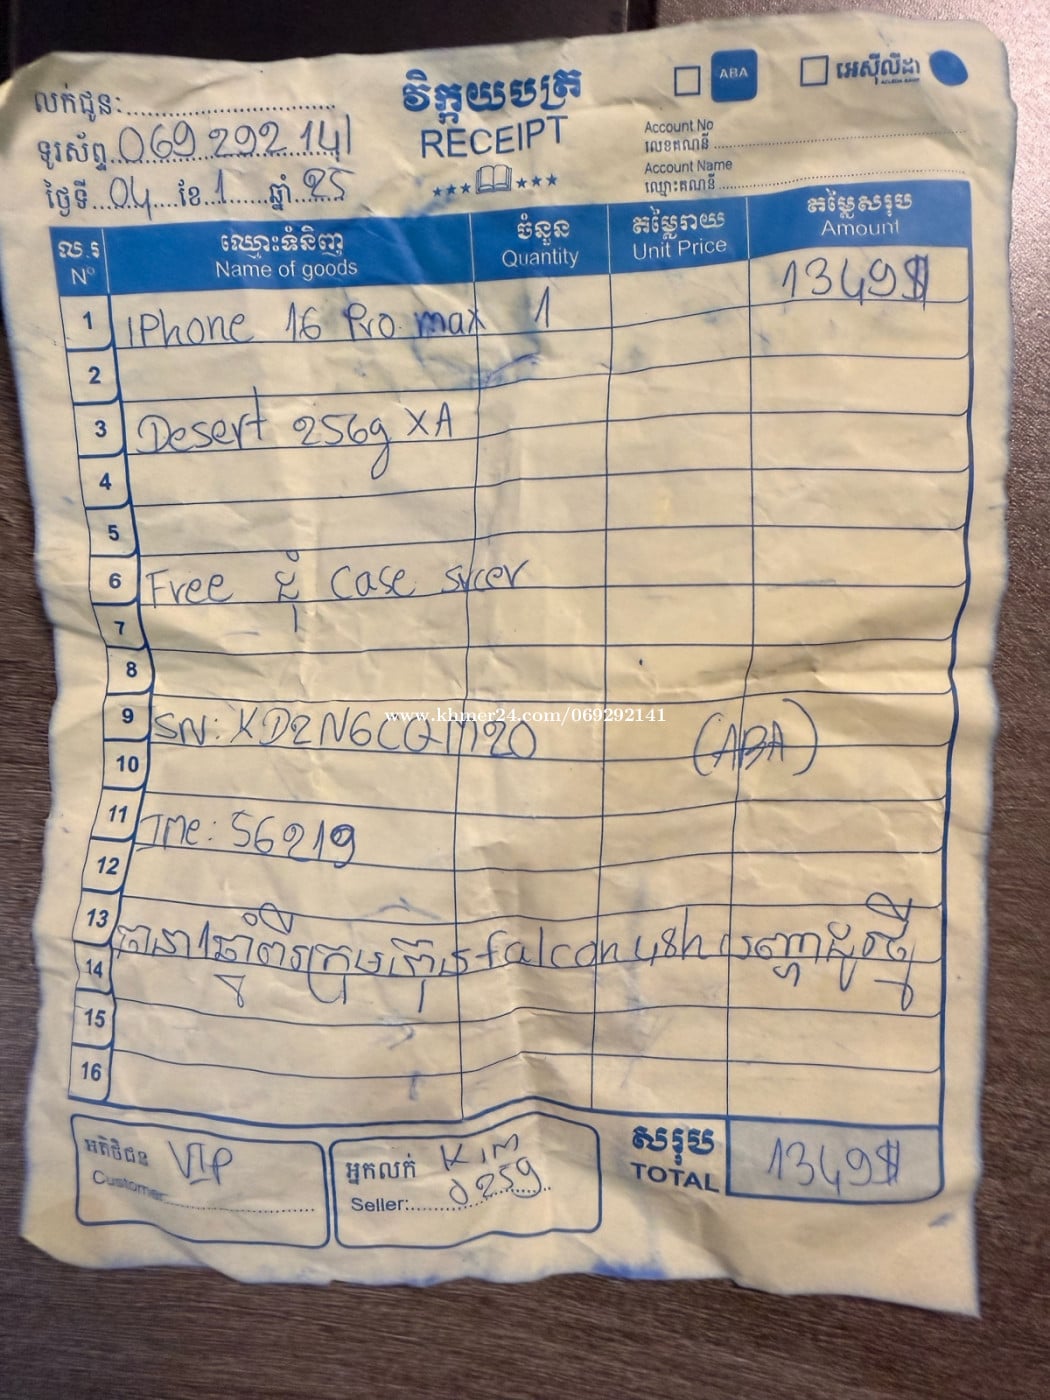 លក់ជូន:
វិក្កយបត្រ
RECEIPT
ABA
អេស៊ីលីដា
ទូរស័ព្ទ 069 292 141
ថ្ងៃទី 04 ខែ 1 ឆ្នាំ 25
Account No
លេខគណនី
Account Name
ឈ្មោះគណនី
ល.រ ឈ្មោះទំនិញ ចំនួន តម្លៃរាយ តម្លៃសរុប
Nº Name of goods Quantity Unit Price Amount
1 IPhone 16 Pro max 1 1349$
2
3 Desert 256g XA
4
5
6 Free ជុំ Case
7
8
www.khmer24.com/069292141
9 SN: (ABA)
10
11 IMe: 56219
12
13 falcon
14
15
16
អតិថិជន VIP
Customer
អ្នកលក់ KIM
Seller: 0259
សរុប
TOTAL 1349$